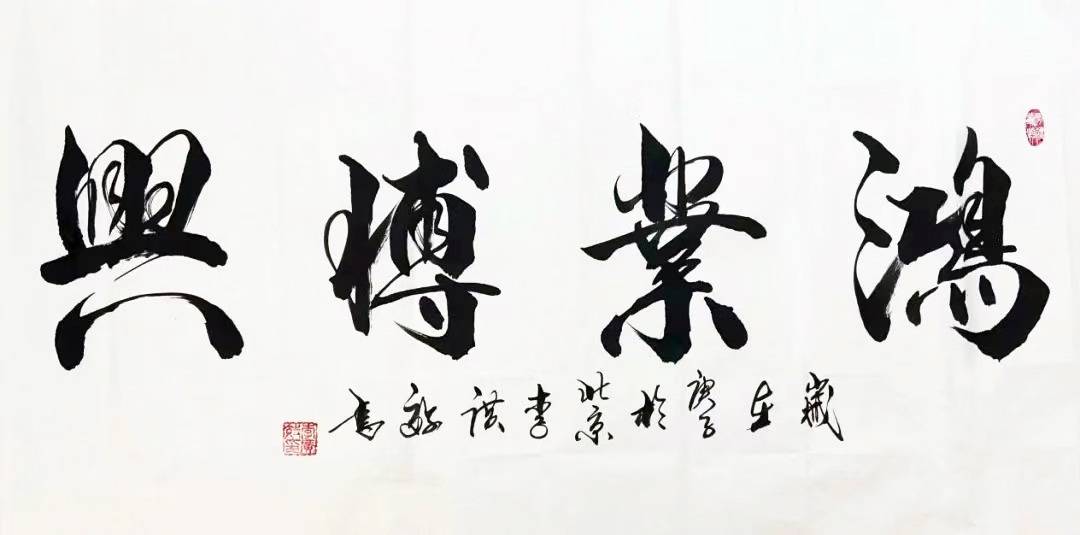 鴻業博興
歲在庚子於北京李書